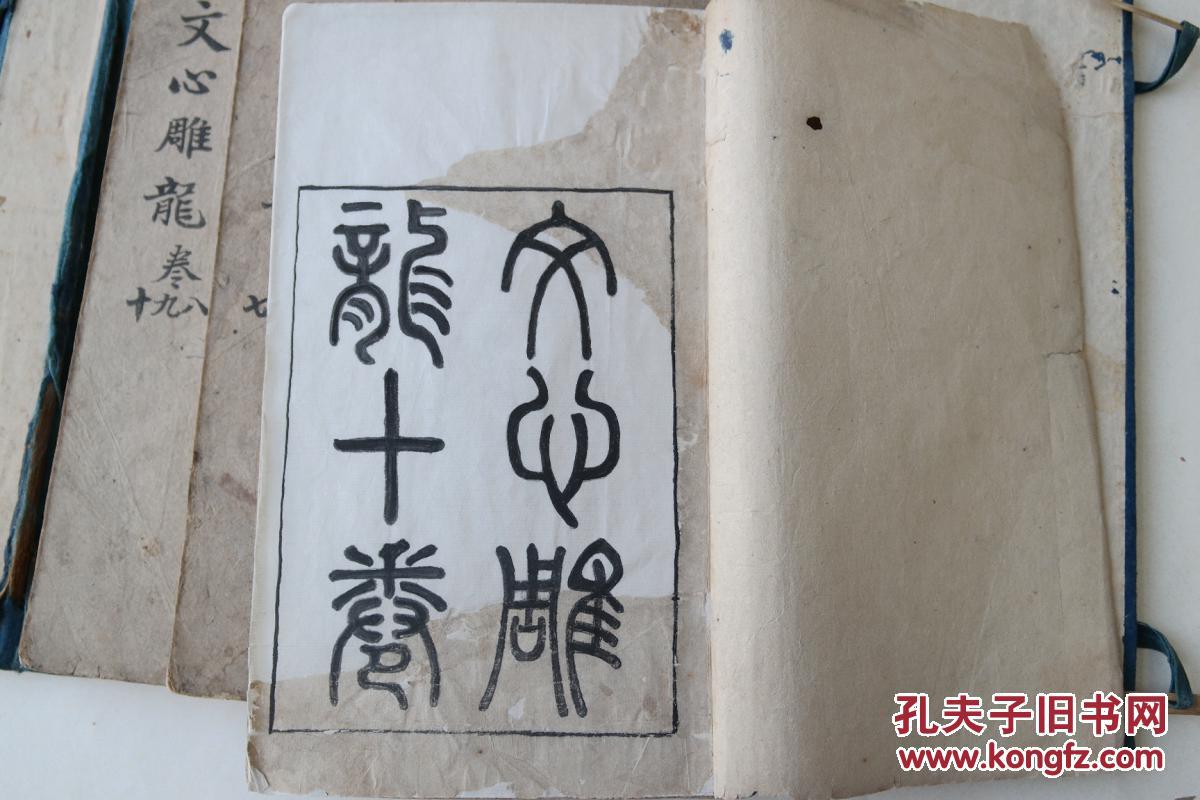 文心雕
龍十卷
文心雕龍 卷
八九十
七
孔夫子旧书网
www.kongfz.com